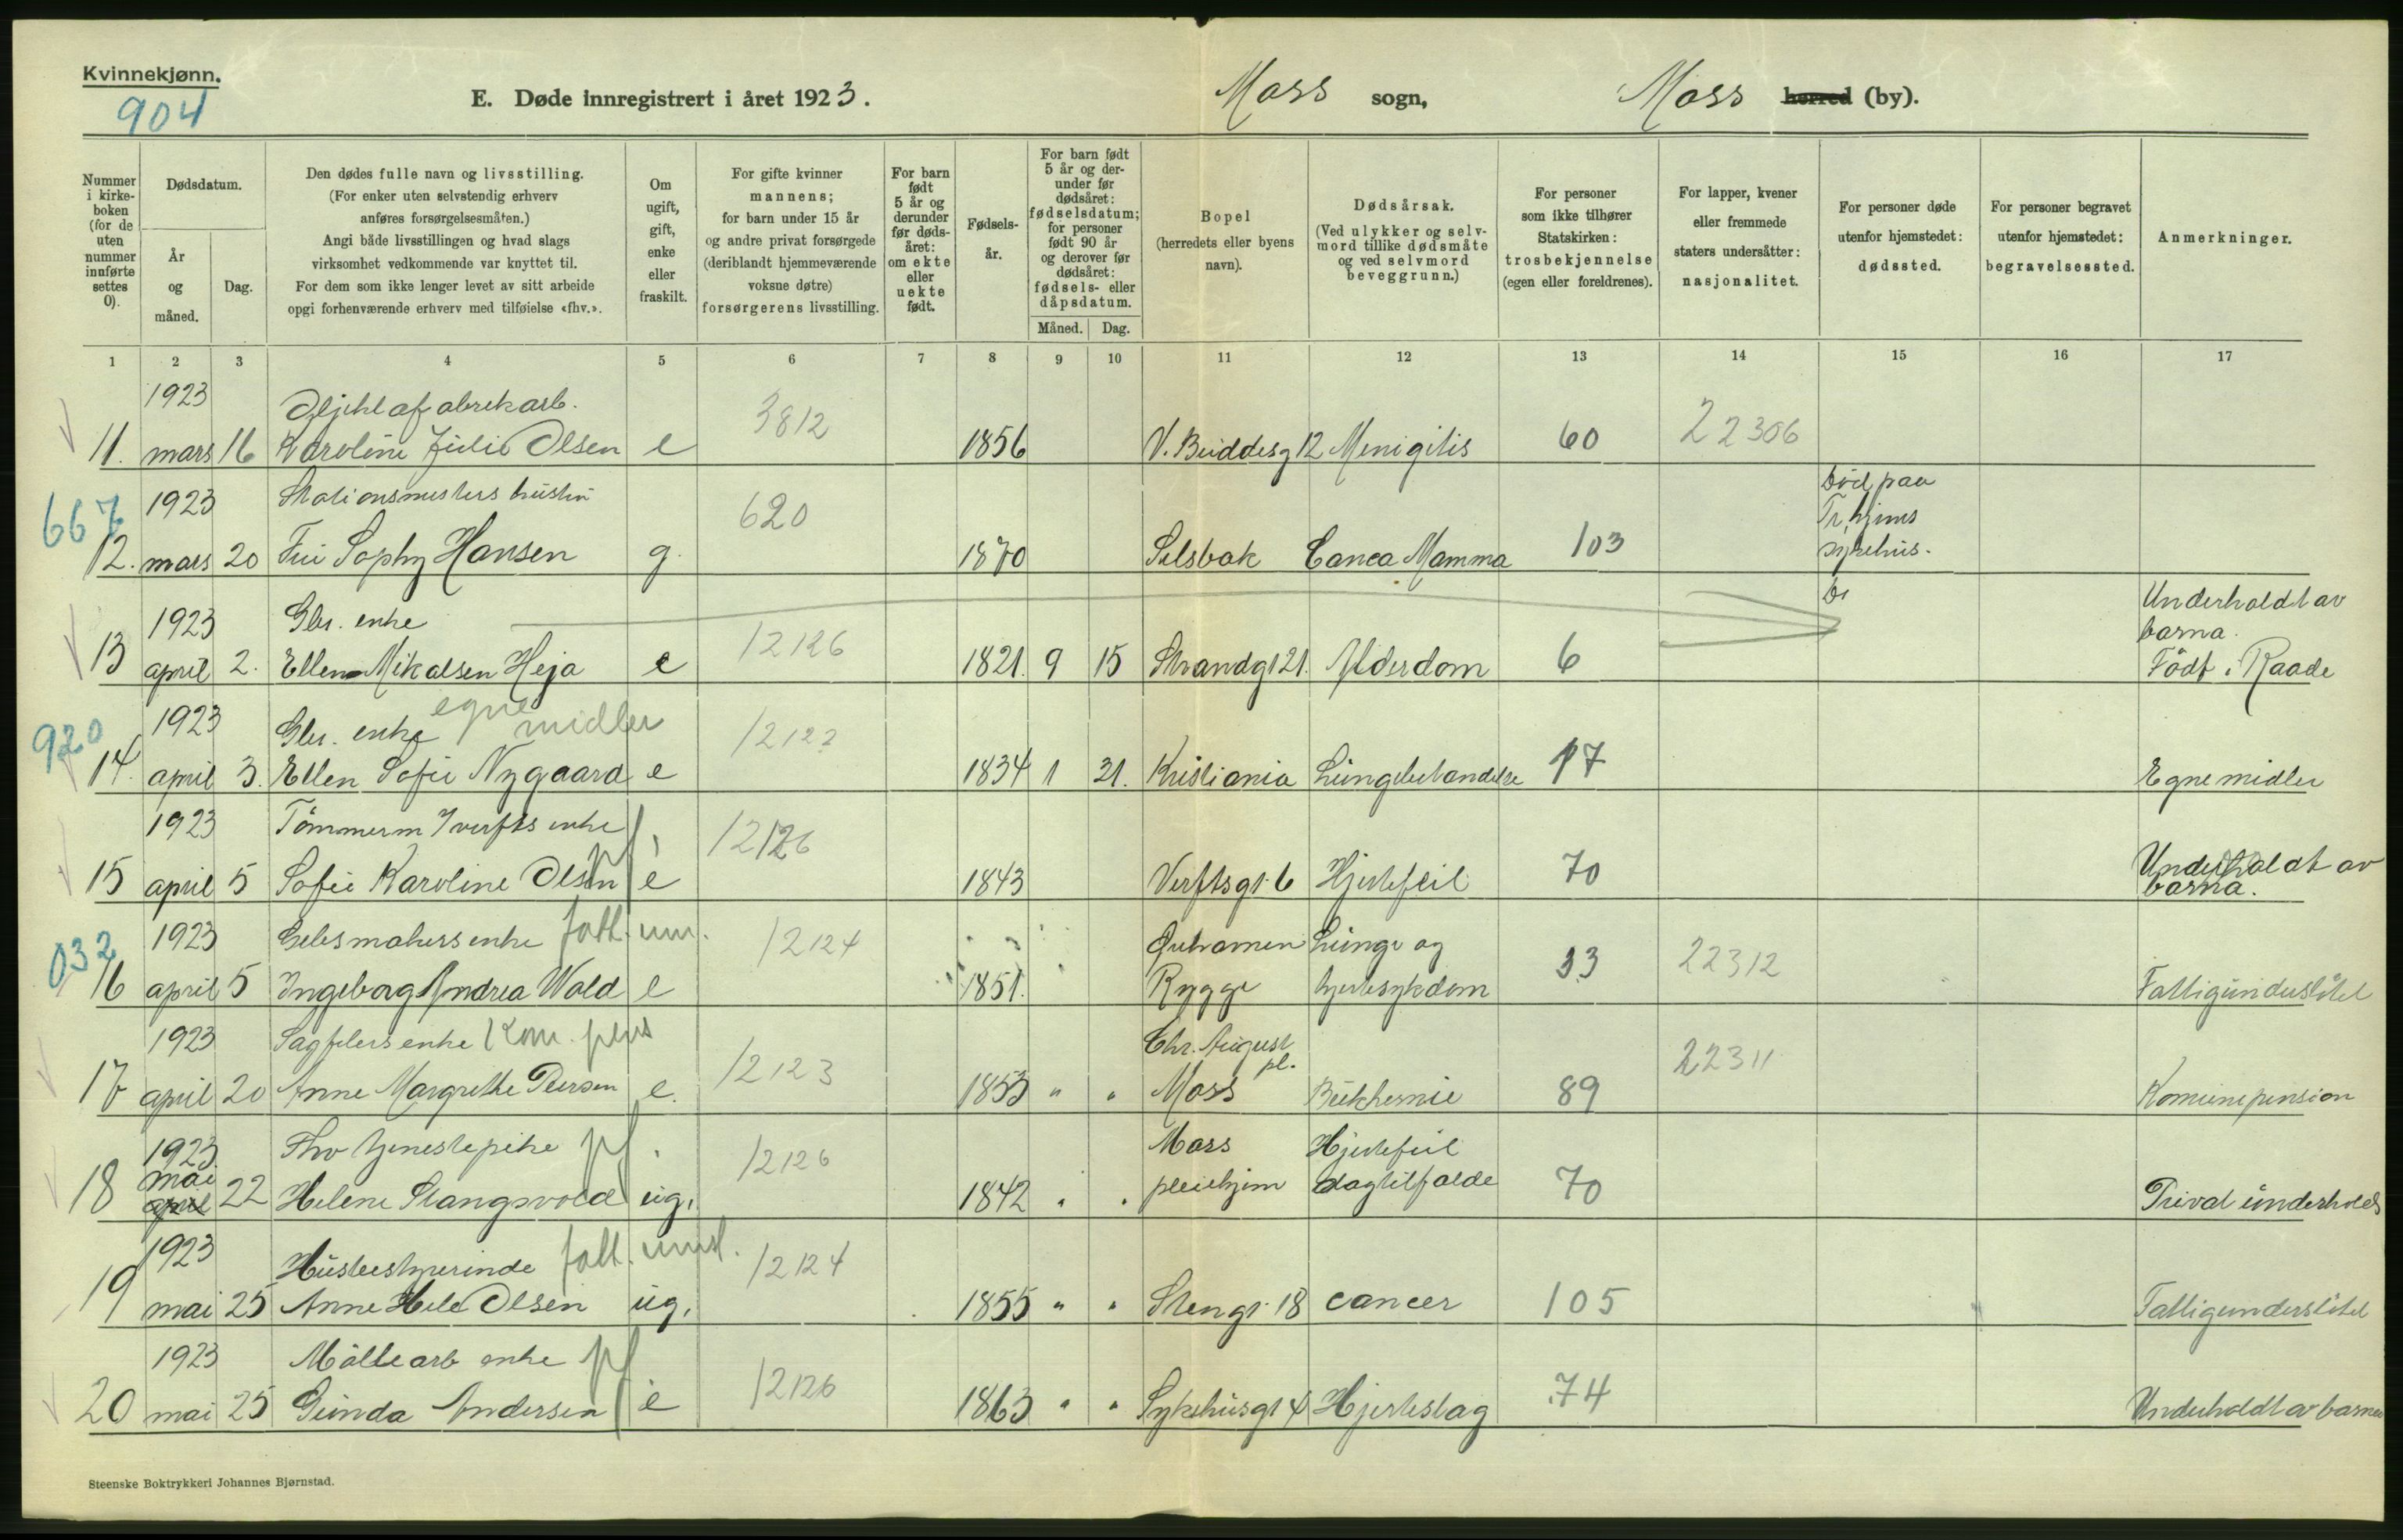 Kvinnekjønn.
904
E. Døde innregistrert i året 1923.
Moss sogn,
Moss herred (by).
Nummer i kirkeboken (for de uten nummer innførte settes 0).
Dødsdatum.
År og måned.
Dag.
Den dødes fulle navn og livsstilling.
(For enker uten selvstendig erhverv
anføres forsørgelsesmåten.)
Angi både livsstillingen og hvad slags
virksomhet vedkommende var knyttet til.
For dem som ikke lenger levet av sitt arbeide
opgi forhenværende erhverv med tilføielse «fhv.».
Om ugift, gift, enke eller fraskilt.
For gifte kvinner
mannens;
for barn under 15 år
og andre privat forsørgede
(deriblandt hjemmeværende
voksne døtre)
forsørgerens livsstilling.
For barn født 5 år og derunder før dødsåret: om ekte eller uekte født.
Fødselsår.
For barn født 5 år og derunder før dødsåret: fødselsdatum; for personer født 90 år og derover før dødsåret: fødsels- eller dåpsdatum.
Måned. Dag.
Bopel
(herredets eller byens
navn).
Dødsårsak.
(Ved ulykker og selvmord tillike dødsmåte
og ved selvmord
beveggrunn.)
For personer
som ikke tilhører
Statskirken:
trosbekjennelse
(egen eller foreldrenes).
For lapper, kvener
eller fremmede
staters undersåtter:
nasjonalitet.
For personer døde
utenfor hjemstedet:
dødssted.
For personer begravet
utenfor hjemstedet:
begravelsessted.
Anmerkninger.
1 2 3 4 5 6 7 8 9 10 11 12 13 14 15 16 17
1923 3812 22306
11. mars 16 Karoline Julie Olsen e 1856 V. Buddesg 12 Menigitis 60
667 1923 Stationsmesters hustru 620 Død paa
Tr.hjems
12. mars 20 Fru Sophy Hansen g. 1870 Selsbak Canca Mamma 103 sykehus.
1923 Gbr. enke 12126 Do Underholdt av
barna.
13 april 2. Ellen Mikalsen Heja e 1821. 9 15 Strandgt 21. Alderdom 6 Født i Raade
920 1923 Gbr. enke egne midler 12122
14. april 3. Ellen Sofie Nygaard e 1834 1 31. Kristiania Lungebetandelse 17 Egne midler
1923 Tømmerm verfts enke pf. 12126
15 april 5 Sofie Karoline Olsen e 1843 Verftsgt. 6 Hjertefeil 70 Underholdt av
barna.
032 1923 enke fatt. un. 12124 Lunge og 22312
16 april 5 Ingeborg Andrea Wold e 1851. Rygge hjertesykdom 33 Fattigunderstøttet
1923 Sagfilers enke Kom. pens 12123 Chr. August pl. 22311
17 april 20 Anne Margrethe Persen e. 1853 " " Moss 89 Komunepension
1923 Fhv tjenestepike pf. 12126 Moss Hjertefeil
18 mai april 22 Helene Stangsvold ug. 1842 " " pleiehjem slagtilfælde 70 Privat underhold
1923 Husbestyrerinde fatt. unst. 12124
19 mai 25 Anne Hele Olsen ug. 1855 " " Stengt. 18 cancer 105 Fattigunderstøttet
1923 Møllearb enke pf 12126
20 mai 25 Gunda Andersen e 1863 " " Sykehusgt 4 Hjerteslag 74 Underholdt av barna
Steenske Boktrykkeri Johannes Bjørnstad.